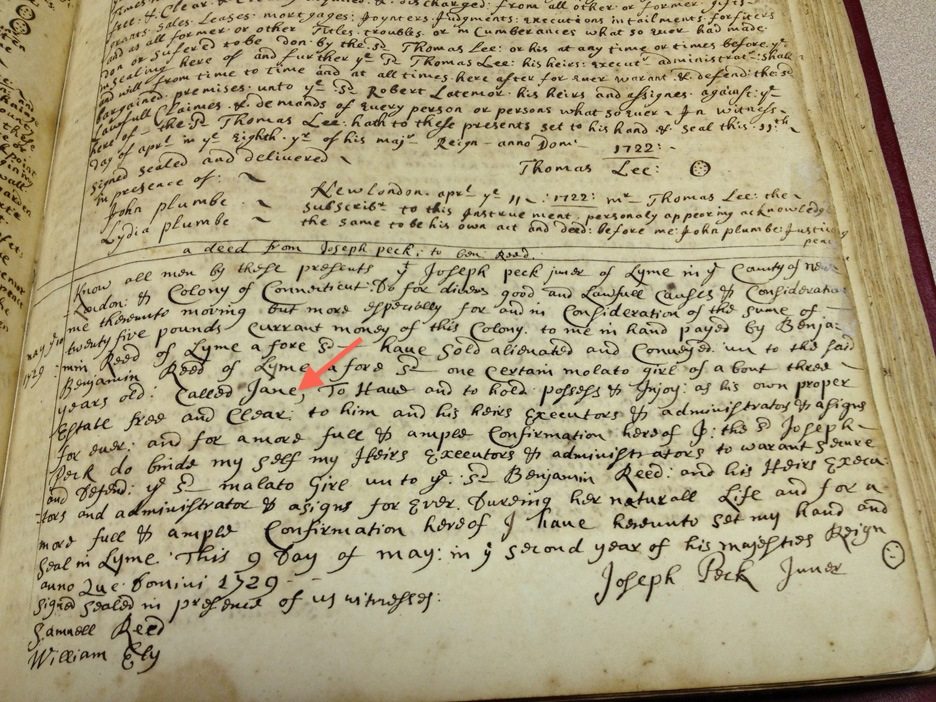 full & Clear & discharged: from all other or former gifts
grants: Sales: Leases: mortgages: Joynters: Judgments: Executions intailments: forfiters
and as all former or other Titles: troubles: or in Cumberances what so Ever had made
don or Suferd to be don: by the sd Thomas Lee: or his at any time or times before ye
insealing here of and further ye sd Thomas Lee: his heirs: Execut administrat: shall
and will from time to time and at all times here after for Ever warant & defend: the sd
bargained premises: unto ye sd Robert Latemor his heirs and assignes against: ye
Lawfull Claimes & demands of Every person or persons what so Ever In witness
here of the sd Thomas Lee: hath to these presents set to his hand & seal this: 11th
day of aprl in ye Eighth yr of his majr Reign anno Domi 1722:
Signed sealed and delivered
Thomas Lee:
in presence of:
John plumbe
Lydia plumbe
New london: aprl ye 11: 1722: mr Thomas Lee: the
subscribr to this Instrue ment: personaly appering acknowledg
the same to be his own act and deed: before me: John plumbe: Justice
peac
a deed from Joseph peck: to ben Reed
may ye 10
1729
Know all men by these presents yt Joseph peck juner of Lyme in ye County of new
London: & Colony of Connecticut Do for divers good and Lawfull causes & Consideratio
me thereunto moving but more especially for and in Consideration of the sume of
twenty five pounds Currant money of this Colony. to me in hand payed by Benja-
min Reed of Lyme a fore sd have sold alienated and Conveyed: un to the said
Benjamin Reed of Lyme a fore sd one Certain molato girl of a bout three
years old: Called Jane, To Have and to hold possess & Injoy: as his own proper
Estate free and Clear: to him and his heirs Executors & administrators & asigns
for ever: and for a more full & ample Confirmation here of I: the sd Joseph
Peck do binde my self my Heirs Executors & administrators to warant secure
and Defend: ye sd malato Girl un to ye sd Benjamin Reed: and his Heirs Execu:
-tors and administrator & asigns for Ever Dureing her naturall Life and for a
more full & ample Confirmation here of I have hereunto set my hand and
Seal in Lyme: This 9 Day of may: in ye second year of his majesties Reign
anno Que Domini 1729
Joseph Peck Juner
Signd Sealed in presence of us witnesses:
Samuell Reed
William Ely